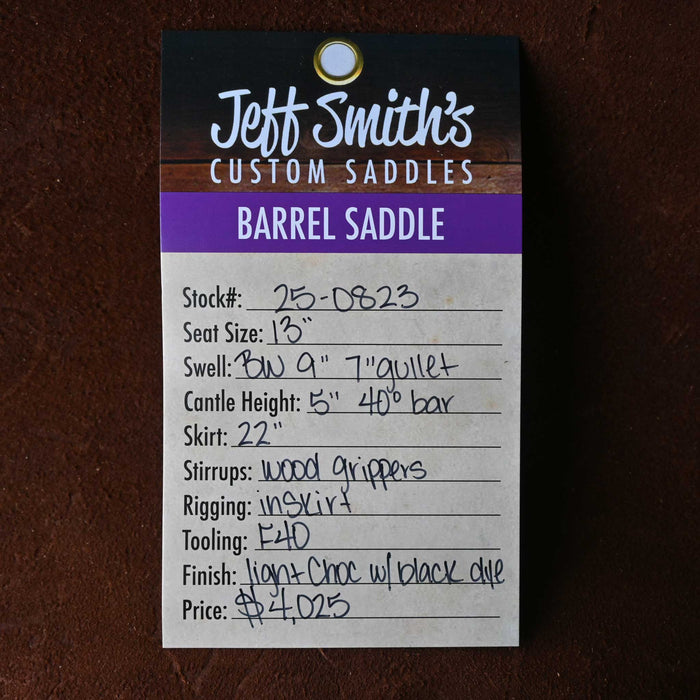 Jeff Smith's
CUSTOM SADDLES
BARREL SADDLE
Stock#: 25-0823
Seat Size: 13"
Swell: BW 9" 7" gullet
Cantle Height: 5" 40° bar
Skirt: 22"
Stirrups: wood grippers
Rigging: inskirt
Tooling: F40
Finish: light Choc w/ black dye
Price: $4,025